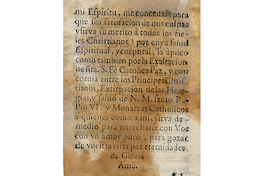 mi Espiritu, me concedais para
que sea satisfacion de mis culpas
y sirva lumerito à todos los fie-
les Christianos, por cuya salud
Espiritual, y corporal, la aplico
como tambien por la Exaltacion
de ñra. S. Fè Catolica Paz, y con-
cordia entre los Principes Chris-
tianos, Extirpacion de las Here-
gias, y salud de N. M. Santo P.
Pio VI. y Monarcas Catholicos
à quienes como à mi, sirva de
medio para estrecharse con Vos
con un amor puro, para gozar
de vuestra vista por eternidades
de Gloria.
Amè.